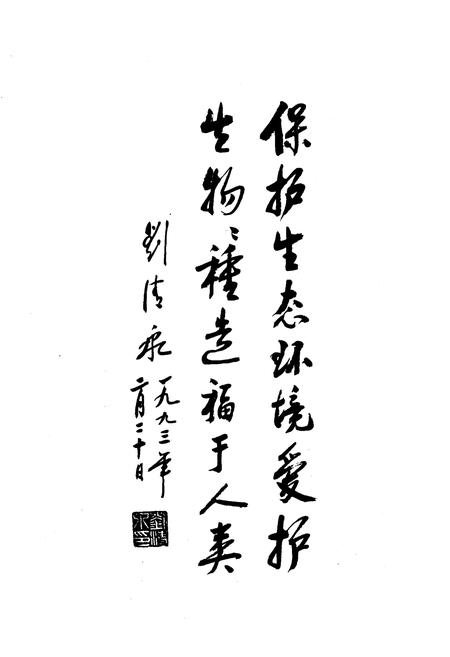 保护生态环境爱护
生物物種造福于人类
劉清泉
一九九三年
二月二十日